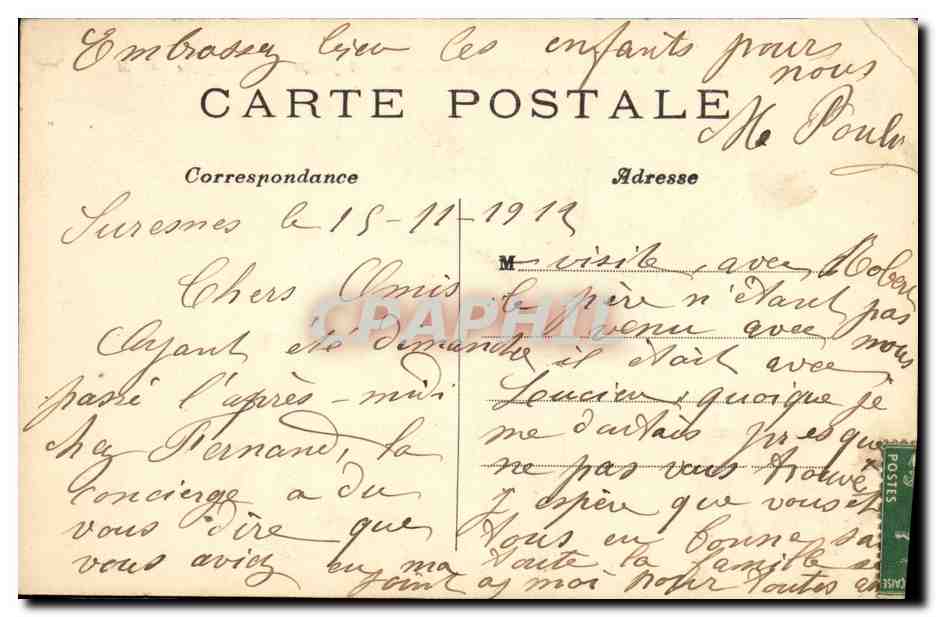 Embrassez bien les enfants pour
nous
CARTE POSTALE
Me
Correspondance
Adresse
Suresnes le 15-11-1912
Chers Amis
Ayant été dimanche
passé l'après-midi
chez Fernand, la
concierge a du
vous dire que
vous aviez eu ma
M visite, avec Robert
le père n'étant pas
venu avec nous
il était avec
Lucien, quoique je
me doutais presque
ne pas vous trouver
j'espère que vous êtes
tous en bonne sa
toute la famille se
joint a moi pour toutes
CPAPHIL
POSTES